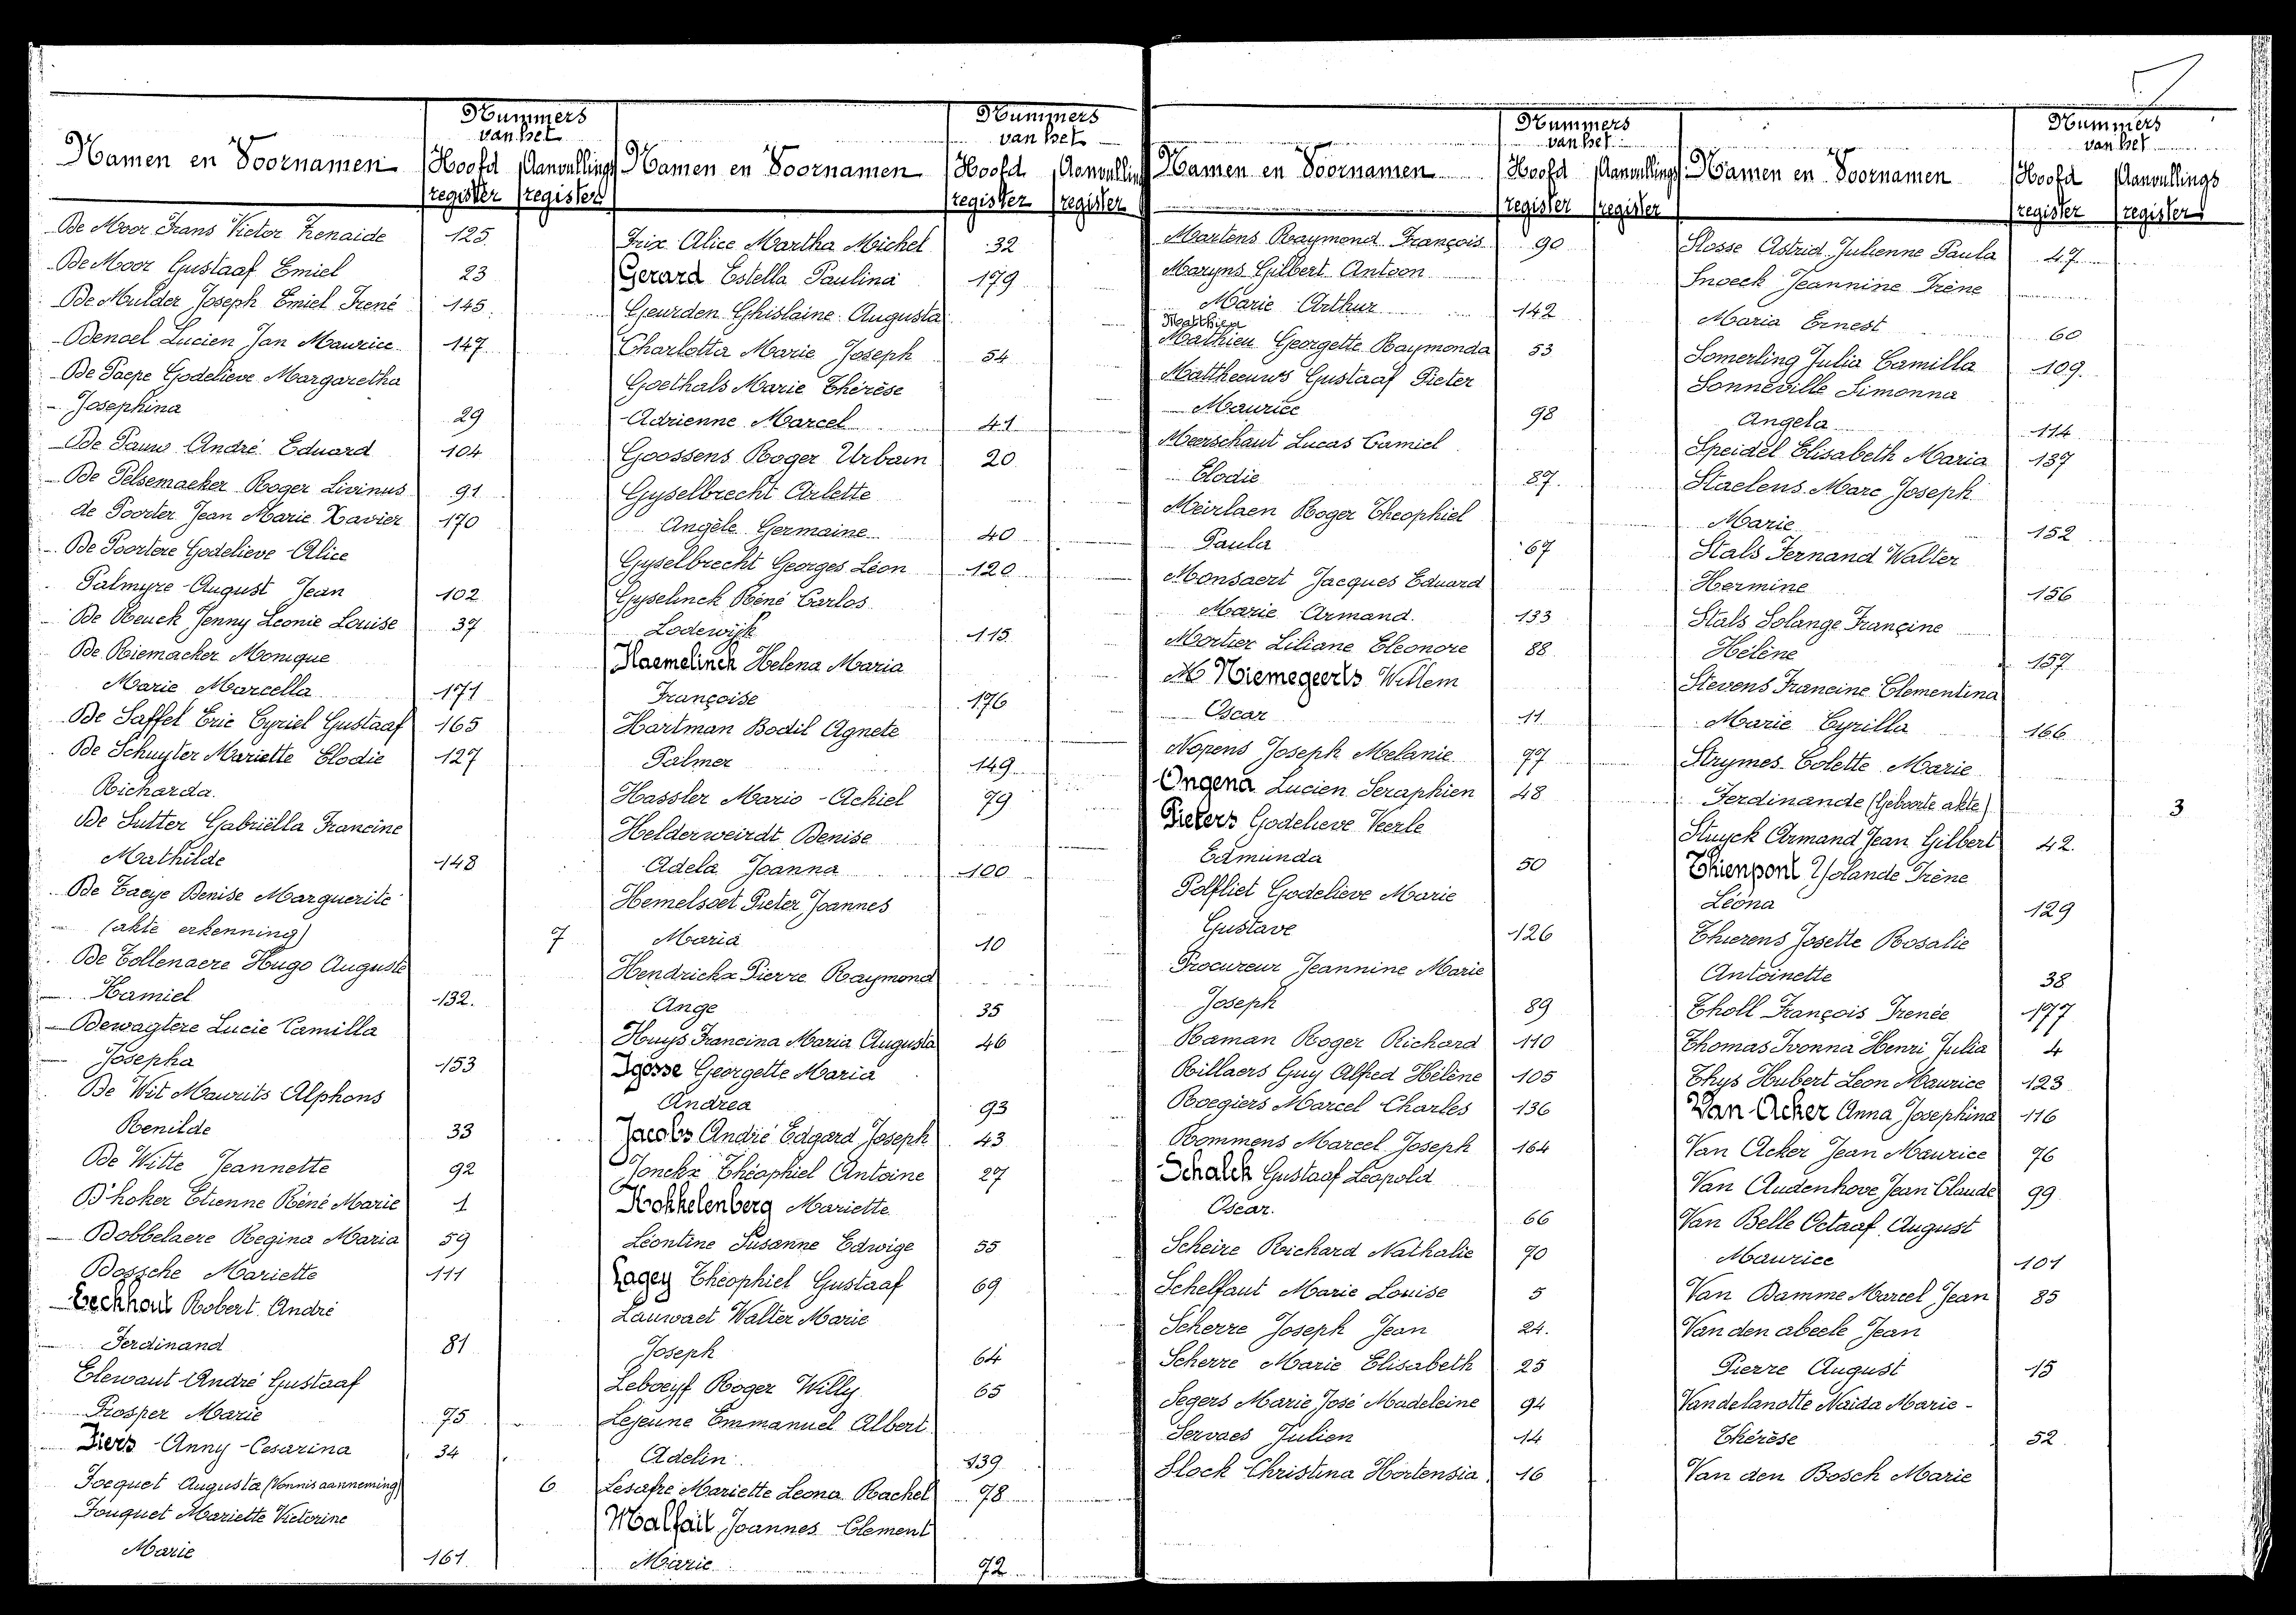 Nummers
van het
Namen en Voornamen Hoofd Aanvullings
register register
De Moor Frans Victor Zenaide 125
De Moor Gustaaf Emiel 23
De Mulder Joseph Emiel Irené 145
Denoel Lucien Jan Maurice 147
De Paepe Godelieve Margaretha
Josephina 29
De Pauw André Eduard 104
De Pelsemaeker Roger Livinus 91
de Poorter Jean Marie Xavier 170
De Poortere Godelieve Alice
Palmyre August Jean 102
De Reuck Jenny Leonie Louise 37
De Riemacker Monique
Marie Marcella 171
De Saffel Eric Cyriel Gustaaf 165
De Schuyter Mariette Elodie 127
Richarda.
De Sutter Gabriëlla Francine
Mathilde 148
De Taeye Denise Marguerite
(akte erkenning) 7
De Tollenaere Hugo Auguste
Kamiel 132.
Dewagtere Lucie Camilla
Josepha 153
De Wit Maurits Alphons
Renilde 33
De Witte Jeannette 92
D'hoker Etienne Réné Marie 1
Dobbelaere Regina Maria 59
Dossche Mariette 111
Eeckhout Robert André
Ferdinand 81
Elewaut André Gustaaf
Prosper Marie 75
Fiers Anny Cesarina 34
Focquet Augusta (Vonnis aanneming) 6
Fouquet Mariette Victorine
Marie 161
Nummers
van het
Namen en Voornamen Hoofd Aanvulling
register register
Frix Alice Martha Michel 32
Gerard Estella Paulina 179
Geurden Ghislaine Augusta
Charlotta Marie Joseph 54
Goethals Marie Thérèse
Adrienne Marcel 41
Goossens Roger Urbain 20
Gyselbrecht Arlette
Angèle Germaine 40
Gyselbrecht Georges Léon 120
Gyselinck Réné Carlos
Lodewijk 115
Haemelinck Helena Maria
Françoise 176
Hartman Bodil Agnete
Palmer 149
Hassler Mario Achiel 79
Helderweirdt Denise
Adela Joanna 100
Hemelsoet Pieter Joannes
Maria 10
Hendrickx Pierre Raymond
Ange 35
Huys Francina Maria Augusta 46
Igosse Georgette Maria
Andrea 93
Jacobs André Edgard Joseph 43
Jonckx Théophiel Antoine 27
Kokkelenberg Mariette
Léontine Susanne Edwige 55
Lagey Théophiel Gustaaf 69
Lauwaet Walter Marie
Joseph 64
Leboeyf Roger Willy 65
Lejeune Emmanuel Albert
Adelin 139
Lesafre Mariette Leona Rachel 78
Malfait Joannes Clement
Marie 72
Nummers
van het
Namen en Voornamen Hoofd Aanvullings
register register
Martens Raymond François 90
Maryns Gilbert Antoon
Marie Arthur 142
Matthieu
Mathieu Georgette Raymonda 53
Mattheeuws Gustaaf Pieter
Maurice 98
Meerschaut Lucas Camiel
Elodie 87.
Meirlaen Roger Theophiel
Paula 67
Monsaert Jacques Eduard
Marie Armand. 133
Mortier Liliane Eleonore 88
M Niemegeerts Willem
Oscar 11
Nopens Joseph Melanie 77
Ongena Lucien Seraphien 48
Pieters Godelieve Veerle
Edmunda 50
Polfliet Godelieve Marie
Gustave 126
Procureur Jeannine Marie
Joseph 89
Raman Roger Richard 110
Rillaers Guy Alfred Hélène 105
Roegiers Marcel Charles 136
Rommens Marcel Joseph 164
Schalck Gustaaf Leopold
Oscar. 66
Scheire Richard Nathalie 70
Schelfaut Marie Louise 5
Scherre Joseph Jean 24.
Scherre Marie Elisabeth 25
Segers Marie José Madeleine 94
Servaes Julien 14
Slock Christina Hortensia 16
Nummers
van het
Namen en Voornamen Hoofd Aanvullings
register register
Slosse Astrid Julienne Paula 47
Snoeck Jeannine Irène
Maria Ernest 60
Somerling Julia Camilla 109.
Sonneville Simonna
Angela 114
Speidel Elisabeth Maria 137
Staelens Marc Joseph
Marie 152
Stals Fernand Walter
Hermine 156
Stals Solange Françine
Hélène 157
Stevens Francine Clementina
Marie Cyrilla 166
Strymes Colette Marie
Ferdinande (Geboorte akte) 3
Stuyck Armand Jean Gilbert 42.
Thienpont Yolande Irène
Léona 129
Thierens Josette Rosalie
Antoinette 38
Tholl François Irenée 177
Thomas Ivonna Henri Julia 4
Thys Hubert Leon Maurice 123
Van Acker Anna Josephina 116
Van Acker Jean Maurice 76
Van Audenhove Jean Claude 99
Van Belle Octaaf August
Maurice 101
Van Damme Marcel Jean 85
Van den abeele Jean
Pierre August 15
Vandelanotte Naida Marie-
Thérèse 52
Van den Bosch Marie